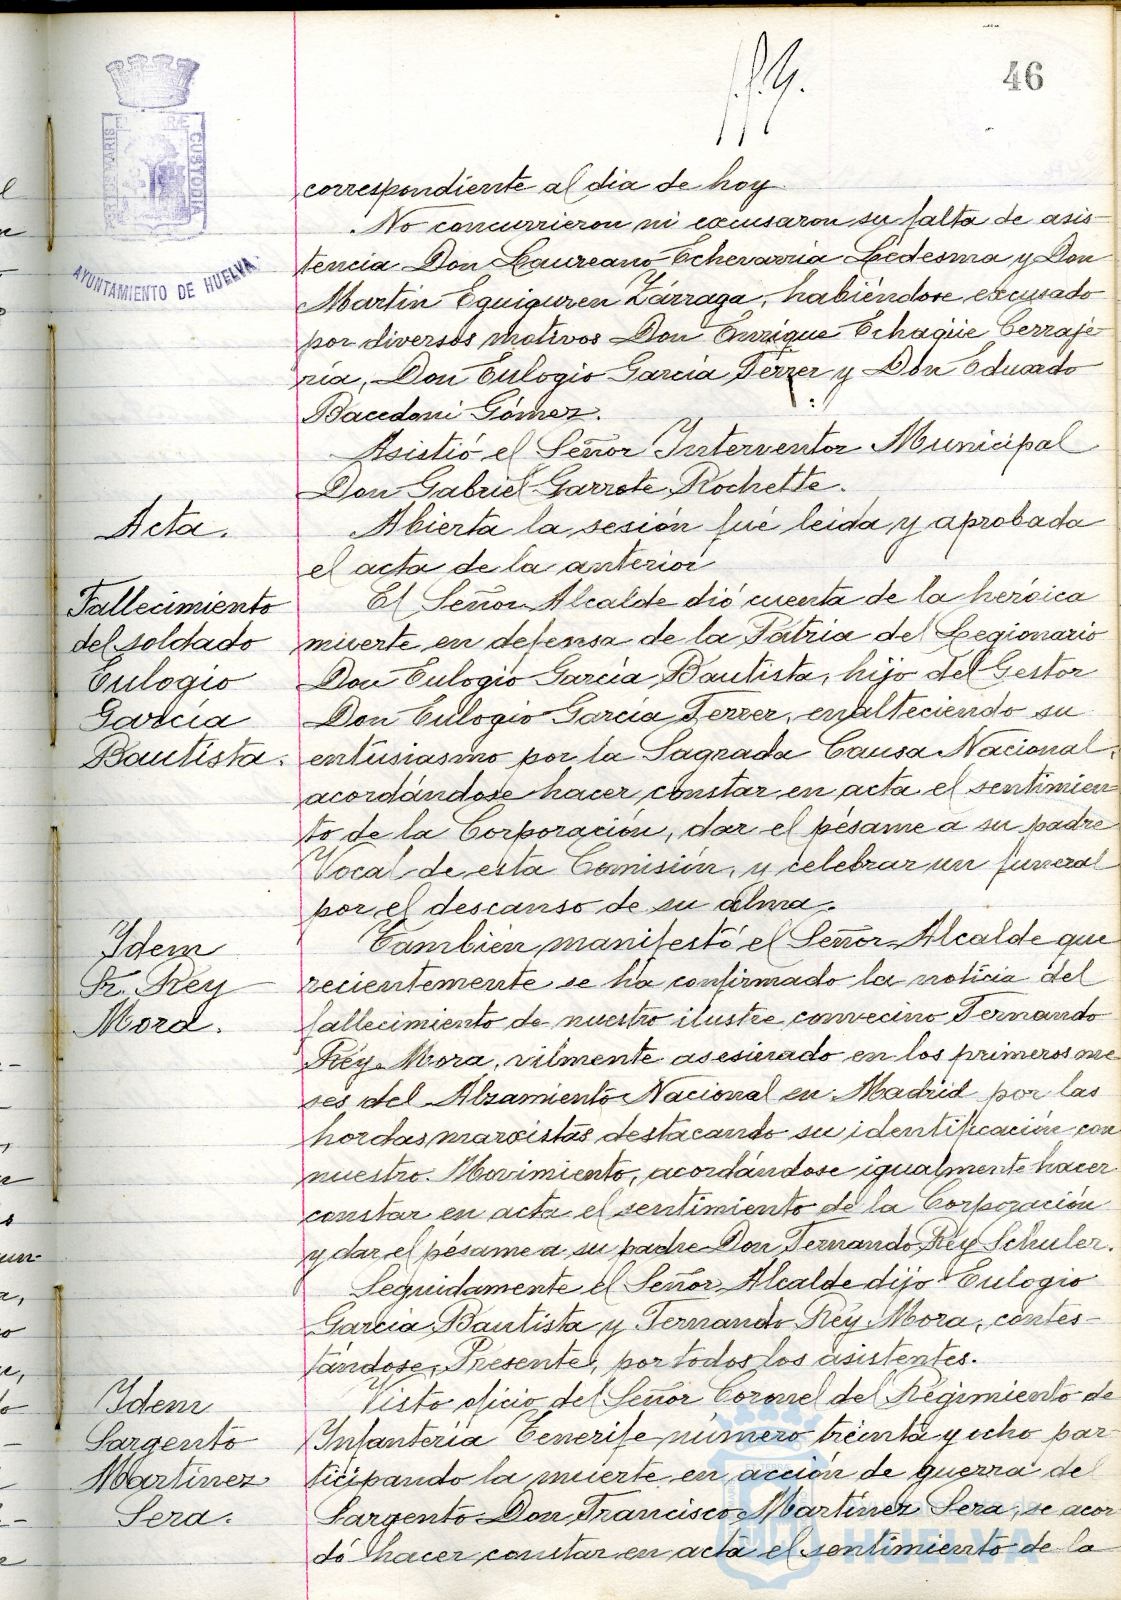 46
PORTUS MARIS ET TERRAE CUSTODIA
AYUNTAMIENTO DE HUELVA
correspondiente al dia de hoy
No concurrieron ni excusaron su falta de asis-
tencia Don Laureano Echevarria Ledesma y Don
Martin Eguiguren Zárraga, habiéndose excusado
por diversos motivos Don Enrique Echagüe Cerraje-
ria, Don Eulogio García Ferrer y Don Eduardo
Bacedoni Gómez.
Asistió el Señor Interventor Municipal
Don Gabriel Garrote Rochette.
Acta.
Abierta la sesión fué leida y aprobada
el acta de la anterior
Fallecimiento
del soldado
Eulogio
García
Bautista.
El Señor Alcalde dió cuenta de la heróica
muerte en defensa de la Patria del Legionario
Don Eulogio García Bautista, hijo del Gestor
Don Eulogio García Ferrer, enalteciendo su
entusiasmo por la Sagrada Causa Nacional,
acordándose hacer constar en acta el sentimien
to de la Corporación, dar el pésame a su padre
Vocal de esta Comisión, y celebrar un funeral
por el descanso de su alma.
Idem
Sr. Rey
Mora.
También manifestó el Señor Alcalde que
recientemente se ha confirmado la noticia del
fallecimiento de nuestro ilustre convecino Fernando
Rey Mora, vilmente asesinado en los primeros me
ses del Alzamiento Nacional en Madrid por las
hordas marxistas destacando su identificación con
nuestro Movimiento, acordándose igualmente hacer
constar en acta el sentimiento de la Corporación
y dar el pésame a su padre Don Fernando Rey Schuler.
Seguidamente el Señor Alcalde dijo Eulogio
García Bautista y Fernando Rey Mora, contes-
tándose, Presente, por todos los asistentes.
Idem
Sargento
Martinez
Sera.
Visto oficio del Señor Coronel del Regimiento de
Infanteria Tenerife número treinta y ocho par-
ticipando la muerte en acción de guerra del
Sargento Don Francisco Martinez Sera, se acor
dó hacer constar en acta el sentimiento de la
HUELVA